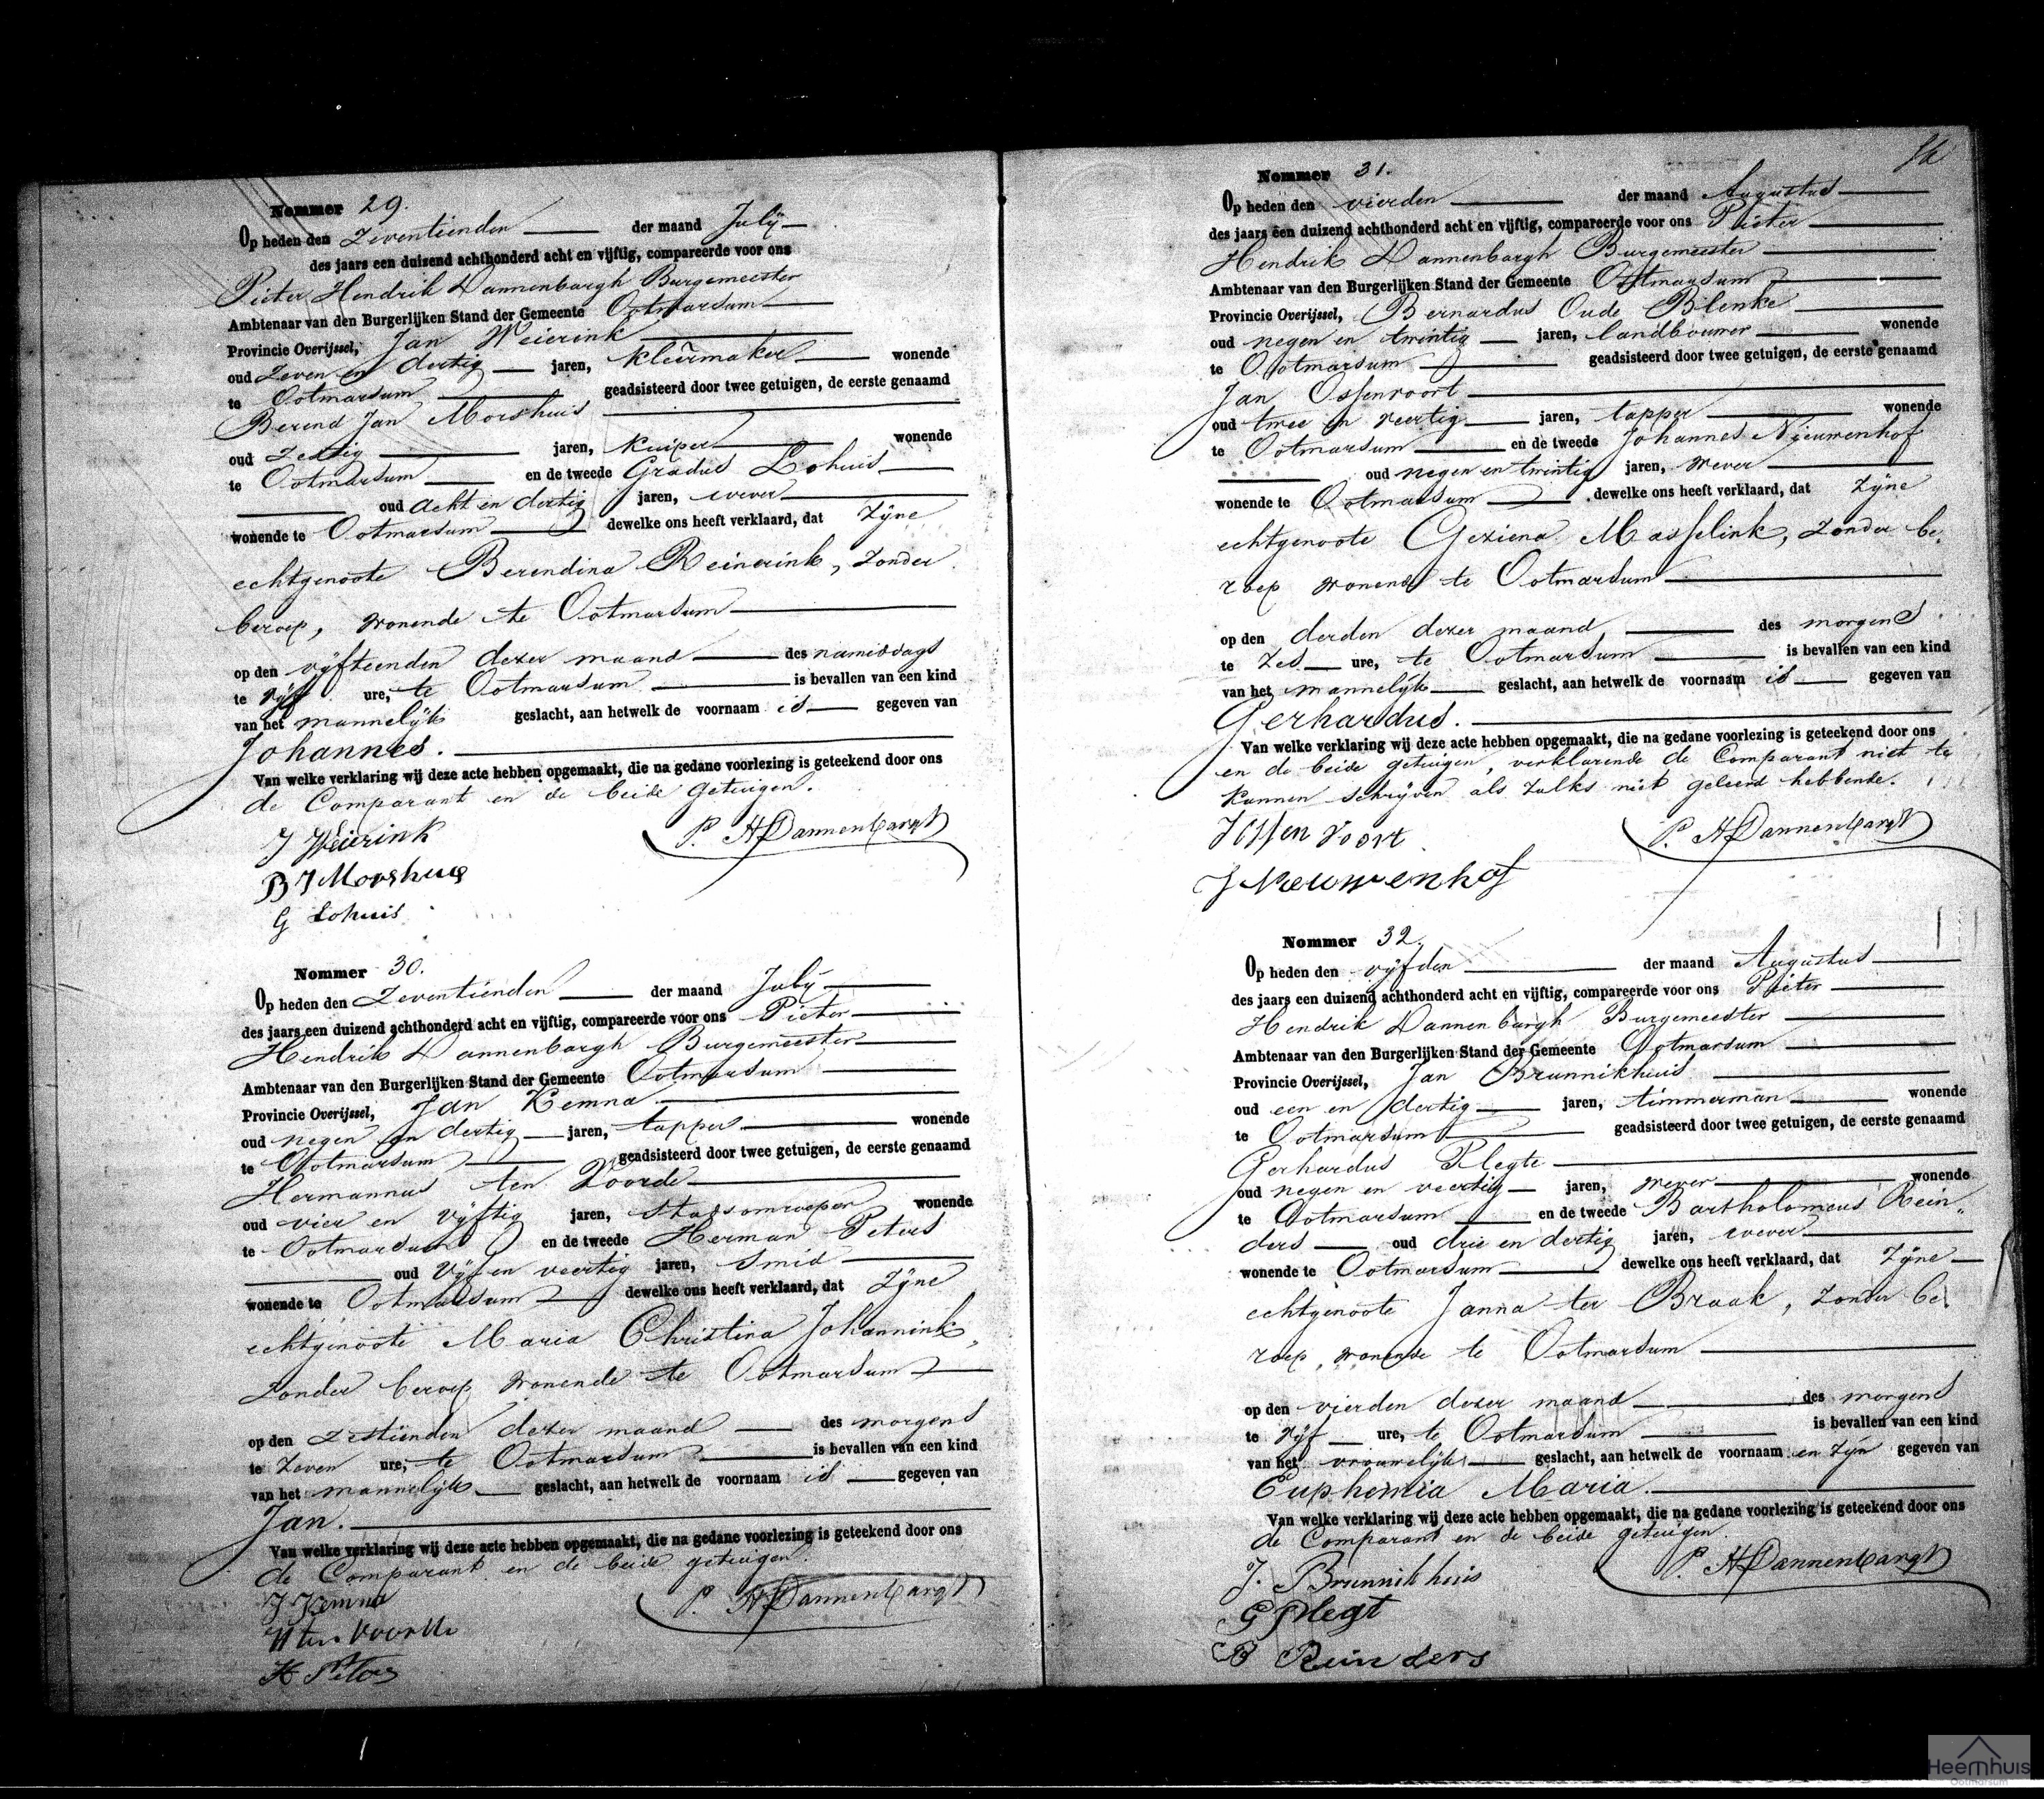 Nommer 29.
Op heden den Zeventienden der maand Julij
des jaars een duizend achthonderd acht en vijftig, compareerde voor ons
Pieter Hendrik Dannenbargh Burgemeester
Ambtenaar van den Burgerlijken Stand der Gemeente Ootmarsum
Provincie Overijssel, Jan Weierink
oud Zeven en dertig jaren, kleermaker wonende
te Ootmarsum geadsisteerd door twee getuigen, de eerste genaamd
Berend Jan Morshuis
oud Zestig jaren, kuiper wonende
te Ootmarsum en de tweede Gradus Lohuis
oud acht en dertig jaren, wever
wonende te Ootmarsum dewelke ons heeft verklaard, dat Zijne
echtgenoote Berendina Reinerink, zonder
beroep, wonende te Ootmarsum
op den vijftienden dezer maand des namiddags
te vijf ure, te Ootmarsum is bevallen van een kind
van het mannelijk geslacht, aan hetwelk de voornaam is gegeven van
Johannes.
Van welke verklaring wij deze acte hebben opgemaakt, die na gedane voorlezing is geteekend door ons
de Comparant en de beide getuigen.
J Weierink P. H Dannenbargh
B J Morshuis
G Lohuis
Nommer 30.
Op heden den Zeventienden der maand July
des jaars een duizend achthonderd acht en vijftig, compareerde voor ons Pieter
Hendrik Dannenbargh Burgemeester
Ambtenaar van den Burgerlijken Stand der Gemeente Ootmarsum
Provincie Overijssel, Jan Kemna
oud negen en dertig jaren, tapper wonende
te Ootmarsum geadsisteerd door twee getuigen, de eerste genaamd
Hermannus ten Voorde
oud vier en vijftig jaren, stadsomroeper wonende
te Ootmarsum en de tweede Herman Peters
oud Vijf en veertig jaren, smid
wonende te Ootmarsum dewelke ons heeft verklaard, dat Zijne
echtgenoote Maria Christina Johannink,
zonder beroep wonende te Ootmarsum
op den zestienden dezer maand des morgens
te Zeven ure, te Ootmarsum is bevallen van een kind
van het mannelijk geslacht, aan hetwelk de voornaam is gegeven van
Jan.
Van welke verklaring wij deze acte hebben opgemaakt, die na gedane voorlezing is geteekend door ons
de Comparant en de beide getuigen.
J Kemna P. H Dannenbargh
H ten Voorde
H Peters
Nommer 31.
Op heden den vierden der maand Augustus
des jaars een duizend achthonderd acht en vijftig, compareerde voor ons Pieter
Hendrik Dannenbargh Burgemeester
Ambtenaar van den Burgerlijken Stand der Gemeente Ootmarsum
Provincie Overijssel, Bernardus Oude Blenke
oud negen en twintig jaren, landbouwer wonende
te Ootmarsum geadsisteerd door twee getuigen, de eerste genaamd
Jan Ossenvoort
oud twee en veertig jaren, tapper wonende
te Ootmarsum en de tweede Johannes Nijeuwenhof
oud negen en twintig jaren, wever
wonende te Ootmarsum dewelke ons heeft verklaard, dat Zijne
echtgenoote Geziena Masselink, zonder be-
roep wonende te Ootmarsum
op den derden dezer maand des morgens
te Zes ure, te Ootmarsum is bevallen van een kind
van het mannelijk geslacht, aan hetwelk de voornaam is gegeven van
Gerhardus.
Van welke verklaring wij deze acte hebben opgemaakt, die na gedane voorlezing is geteekend door ons
en de beide getuigen, verklarende de Comparant niet te
kunnen schrijven als zulks niet geleerd hebbende.
J Ossenvoort P. H Dannenbargh
J Nieuwenhof
Nommer 32.
Op heden den vijfden der maand Augustus
des jaars een duizend achthonderd acht en vijftig, compareerde voor ons Pieter
Hendrik Dannenbargh Burgemeester
Ambtenaar van den Burgerlijken Stand der Gemeente Ootmarsum
Provincie Overijssel, Jan Brunnikhuis
oud een en dertig jaren, timmerman wonende
te Ootmarsum geadsisteerd door twee getuigen, de eerste genaamd
Gerhardus Plegte
oud negen en veertig jaren, wever wonende
te Ootmarsum en de tweede Bartholomeus Rein-
ders oud drie en dertig jaren, wever
wonende te Ootmarsum dewelke ons heeft verklaard, dat Zijne
echtgenoote Janna ter Braak, zonder be-
roep, wonende te Ootmarsum
op den vierden dezer maand des morgens
te Vijf ure, te Ootmarsum is bevallen van een kind
van het vrouwelijk geslacht, aan hetwelk de voornaam en zijn gegeven van
Euphemia Maria.
Van welke verklaring wij deze acte hebben opgemaakt, die na gedane voorlezing is geteekend door ons
de Comparant en de beide getuigen.
J. Brunnikhuis P. H Dannenbargh
G Plegt
B Reinders
Heemhuis
Ootmarsum